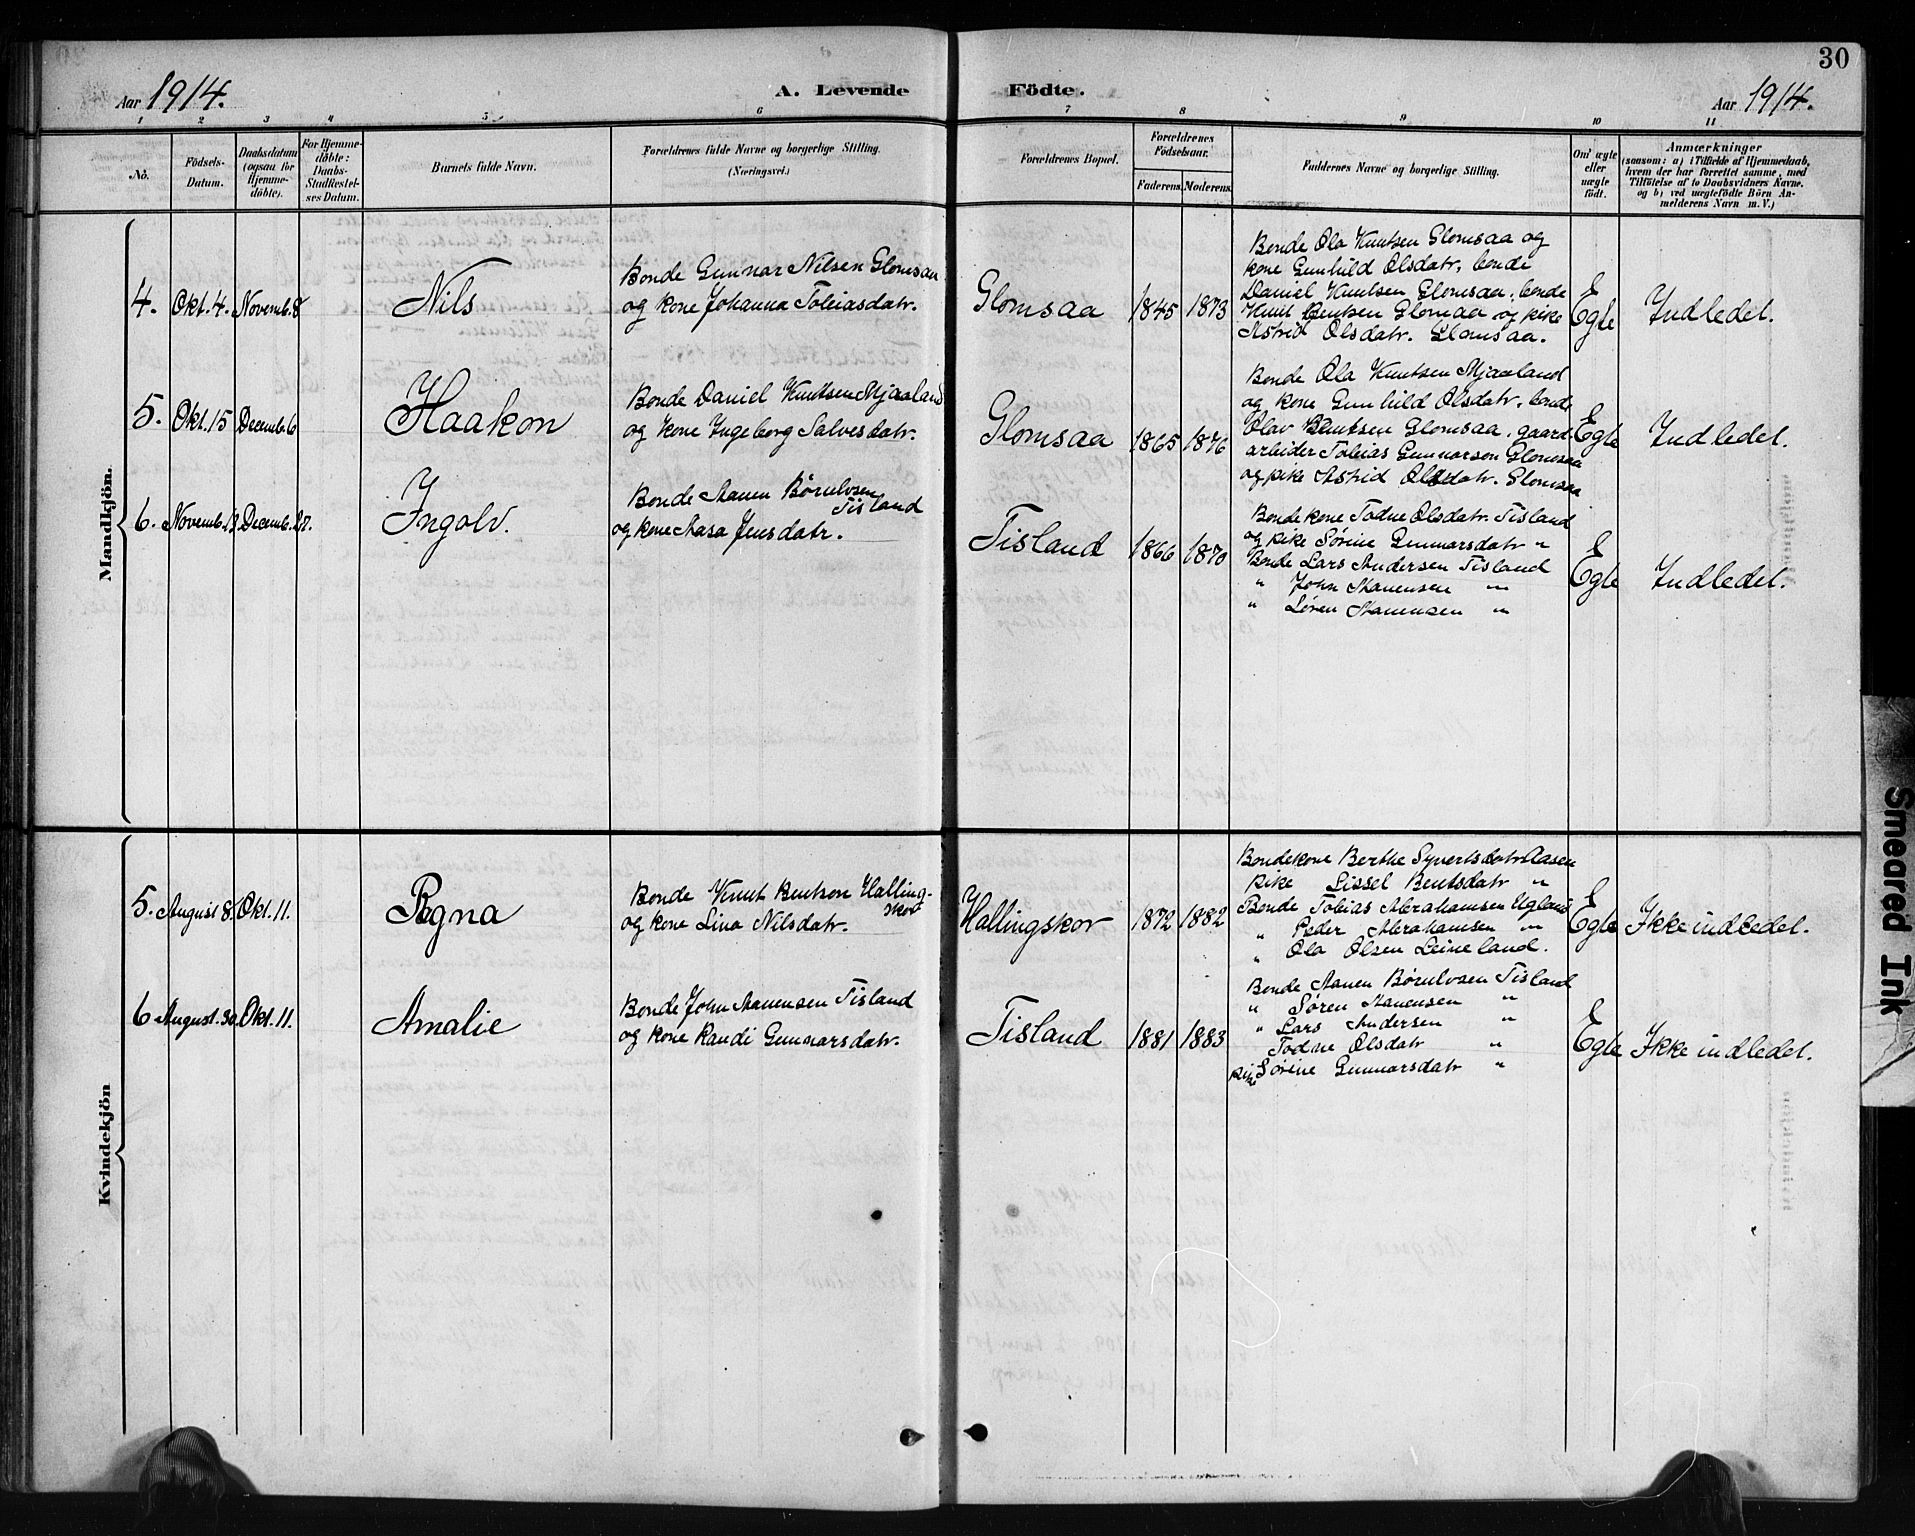 30
Aar 1914.
A. Levende Födte.
Aar 1914.
1 2 3 4 5 6 7 8 9 10 11
No.
Födsels-
Datum.
Daabsdatum
(ogsaa for
Hjemme-
döbte).
For Hjemme-
döbte:
Daabs-
Stadfæstel-
ses Datum.
Barnets fulde Navn.
Forældrenes fulde Navne og borgerlige Stilling.
(Næringsvei.)
Forældrenes Bopæl.
Forældrenes
Födselsaar.
Faderens. Moderens.
Faddernes Navne og borgerlige Stilling.
Om ægte
eller
uægte
födt.
Anmærkninger
(saasom: a) i Tilfælde af Hjemmedaab,
hvem der har forrettet samme, med
Tilföielse af to Daabsvidners Navne.
og b) ved uægtefödte Börn An-
melderens Navn m. V.)
Mandkjön.
4. Okt. 4. Novemb. 8 Nils
Bonde Gunnar Nilsen Glomsaa
og kone Johanna Tobiasdatr.
Glomsaa 1845 1873
Bonde Ola Knutsen Glomsaa og
kone Gunhild Olsdatr, bonde
Daniel Knutsen Glomsaa, bonde
Knut Bentsen Glomsaa og pike
Astrid Olsdatr. Glomsaa.
Egte Indledet.
5. Okt. 15 Decemb. 6 Haakon
Bonde Daniel Knutsen Mjaaland
og kone Ingeborg Salvesdatr.
Glomsaa 1865 1876
Bonde Ola Knutsen Mjaaland
og kone Gunhild Olsdatr, bonde
Olav Bentsen Glomsaa, gaard-
arbeider Tobias Gunnarson Glomsaa
og pike Astrid Olsdatr. Glomsaa
Egte Indledet.
6. Novemb. 13. Decemb. 27. Ingolv.
Bonde Aanen Børulvsen
Tisland
og kone Aasa Jensdatr.
Tisland 1866 1870
Bondekone Todne Olsdatr. Tisland
og pike Sørine Gunnarsdatr "
Bonde Lars Andersen Tisland
" John Aanensen "
" Søren Aanensen "
Egte Indledet.
Kvindekjön
5. August 8. Okt. 11. Ragna
Bonde Knut Bentson Halling-
skor
og kone Lina Nilsdatr.
Hallingskor 1872 1882
Bondekone Berthe Syvertsdatr Aasen
pike Lissel Bentsdatr "
Bonde Tobias Abrahamsen Ugland
" Peder Abrahamsen "
" Ola Olsen Leineland.
Egte Ikke indledet.
6 August. 30. Okt. 11. Amalie
Bonde John Aanensen Tisland
og kone Randi Gunnarsdatr.
Tisland 1881 1883
Bonde Aanen Børulvsen Tisland
" Søren Aanensen "
" Lars Andersen "
Todne Olsdatr "
pike Sørine Gunnarsdatr "
Egte Ikke indledet.
Smeared Ink